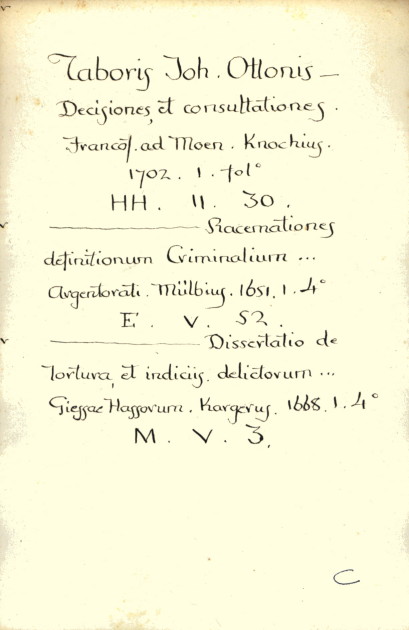 Taboris Joh. Ottonis —
Decisiones, et consultationes.
Francof. ad Moen. Knochius.
1702. 1. fol°
HH. II. 30.
——— Racemationes
definitionum Criminalium ...
Argentorati. Mülbius. 1651. 1. 4°
E. V. 52.
——— Dissertatio de
Tortura, et indicijs, delictorum ...
Giessae Hassorum. Kargerus. 1668. 1. 4°
M. V. 3.
C